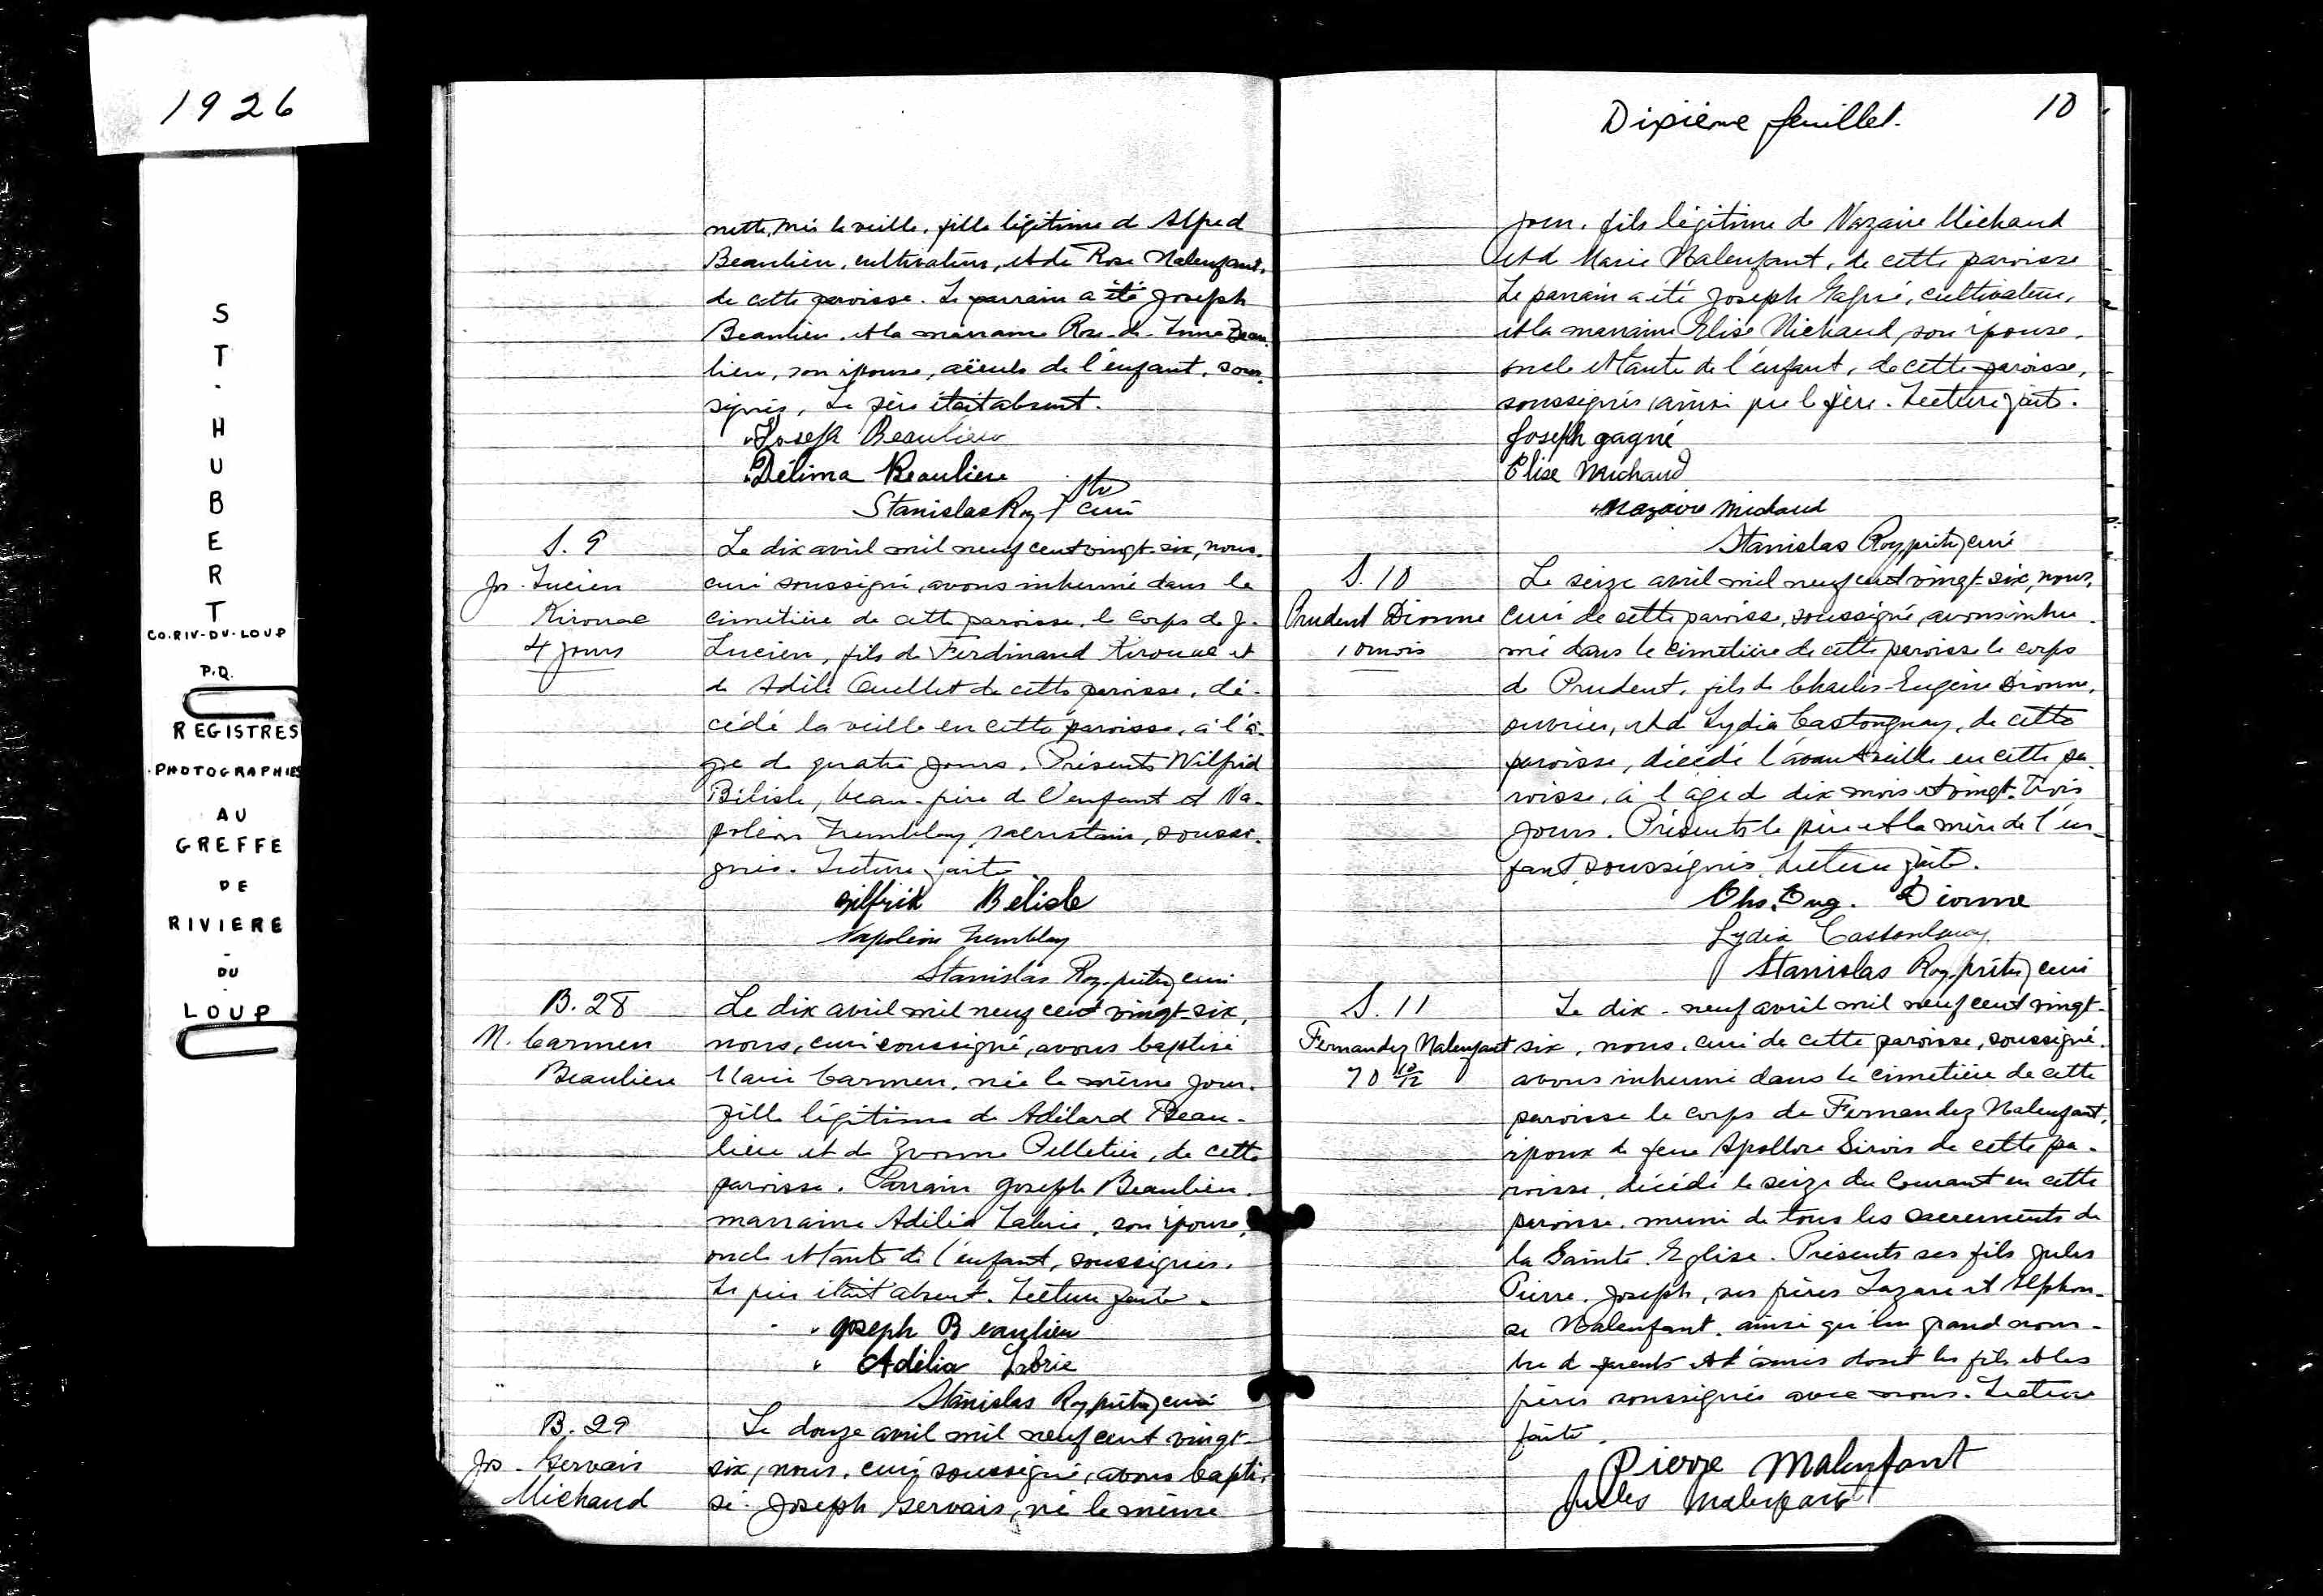 1926
ST-HUBERT
CO. RIV-DU-LOUP
P.Q.
REGISTRES
PHOTOGRAPHIES
AU
GREFFE
DE
RIVIERE
-
DU
-
LOUP
nette, née la veille, fille légitime de Alfred
Beaulieu, cultivateur, et de Rose Malenfant,
de cette paroisse. Le parrain a été Joseph
Beaulieu et la marraine Rose-de-Lima Beau-
lieu, son épouse, aïeuls de l'enfant, sous-
signés, Le père était absent.
Joseph Beaulieu
Délima Beaulieu
Stanislas Roy ptre curé
S. 9
Jos. Lucien
Kirouac
4 jours
Le dix avril mil neuf cent vingt-six, nous,
curé soussigné, avons inhumé dans le
cimetière de cette paroisse, le corps de J.
Lucien, fils de Ferdinand Kirouac et
de Adèle Ouellet de cette paroisse, dé-
cédé la veille en cette paroisse, à l'â-
ge de quatre jours. Présents Wilfrid
Bélisle, beau-père de l'enfant et Na-
poléon Tremblay, sacristain, soussi-
gnés. Lecture faite.
Wilfrid Belisle
Napoléon Tremblay
Stanislas Roy, prêtre, curé
B. 28
M. Carmen
Beaulieu
Le dix avril mil neuf cent vingt-six,
nous, curé soussigné, avons baptisé
Marie Carmen, née le même jour,
fille légitime de Adélard Beau-
lieu et de Yvonne Pelletier, de cette
paroisse. Parrain Joseph Beaulieu,
marraine Adélia Labrie, son épouse,
oncle et tante de l'enfant, soussignés.
Le père était absent. Lecture faite.
Joseph Beaulieu
Adélia Labrie
Stanislas Roy, prêtre, curé
B. 29
Jos. Gervais
Michaud
Le douze avril mil neuf cent vingt-
six, nous, curé soussigné, avons bapti-
sé Joseph Gervais, né le même
Dixième feuillet.
10
jour, fils légitime de Nazaire Michaud
et de Marie Malenfant, de cette paroisse
Le parrain a été Joseph Gagné, cultivateur,
et la marraine Elise Michaud, son épouse,
oncle et tante de l'enfant, de cette paroisse,
soussignés, ainsi que le père. Lecture faite.
Joseph gagné
Elise Michaud
Nazaire Michaud
Stanislas Roy, prêtre, curé
S. 10
Prudent Dionne
10 mois
Le seize avril mil neuf cent vingt-six, nous,
curé de cette paroisse, soussigné, avons inhu-
mé dans le cimetière de cette paroisse le corps
de Prudent, fils de Charles-Eugène Dionne,
ouvrier, et de Lydia Castonguay, de cette
paroisse, décédé l'avant veille en cette pa-
roisse, à l'âge de dix mois et vingt-trois
jours. Présents le père et la mère de l'en-
fant, soussignés. Lecture faite.
Chs. Eug. Dionne
Lydia Castonguay
Stanislas Roy, prêtre, curé
S. 11
Fernandez Malenfant
70 10/12
Le dix-neuf avril mil neuf cent vingt-
six, nous, curé de cette paroisse, soussigné,
avons inhumé dans le cimetière de cette
paroisse le corps de Fernandez Malenfant,
époux de feue Apolline Sirois de cette pa-
roisse, décédé le seize du courant en cette
paroisse, muni de tous les sacrements de
la Sainte Eglise. Présents ses fils Jules
Pierre, Joseph, ses frères Lazare et Alphon-
se Malenfant, ainsi qu'un grand nom-
bre de parents et d'amis dont les fils et les
frères soussignés avec nous. Lecture
faite.
Pierre Malenfant
Jules Malenfant